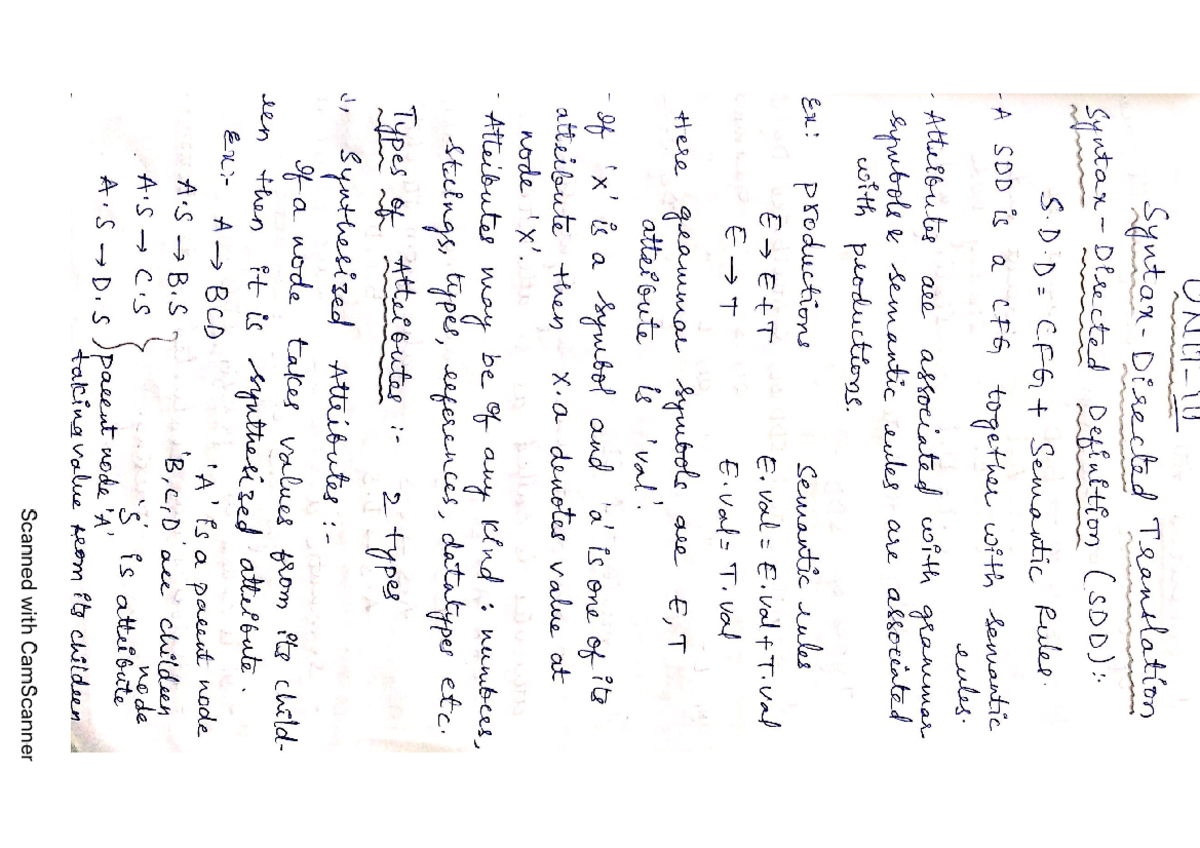 UNIT-III
Syntax-Directed Translation
Syntax-Directed Definition (SDD):-
S.D.D = CFG + Semantic Rules.
- A SDD is a CFG together with semantic
rules.
- Attributes are associated with grammar
symbols & semantic rules are associated
with productions.
Ex: productions Semantic rules
E → E + T E.val = E.val + T.val
E → T E.val = T.val
Here grammar symbols are E, T
attribute is 'val'.
- If 'x' is a symbol and 'a' is one of its
attribute then x.a denotes value at
node 'x'.
- Attributes may be of any kind : numbers,
strings, types, references, datatypes etc.
Types of Attributes :- 2 types
1, Synthesized Attributes :-
If a node takes values from its child-
ren then it is synthesized attribute.
Ex:- A → BCD 'A' is a parent node
A.S → B.S 'B,C,D' are children
node
A.S → C.S 'S' is attribute
A.S → D.S parent node 'A'
taking value from its children
Scanned with CamScanner